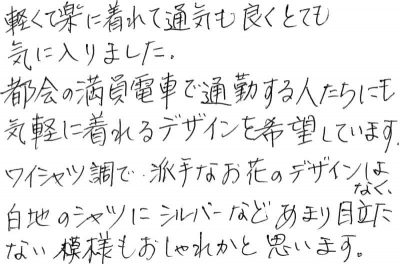 軽くて楽に着れて通気も良くとても
気に入りました。
都会の満員電車で通勤する人たちにも
気軽に着れるデザインを希望しています。
ワイシャツ調で、派手なお花のデザインはなく、
白地のシャツにシルバーなどあまり目立た
ない模様もおしゃれかと思います。